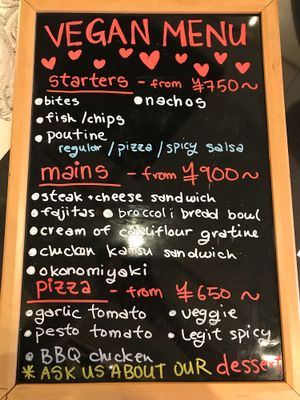 VEGAN MENU
starters - from ¥750~
• bites • nachos
• fish/chips
• poutine
regular / pizza / spicy salsa
mains - from ¥900~
• steak + cheese sandwich
• fajitas • broccoli bread bowl
• cream of cauliflour gratine
• chicken katsu sandwich
• okonomiyaki
pizza - from ¥650~
• garlic tomato • veggie
• pesto tomato • legit spicy
• BBQ chicken
* ASK US ABOUT OUR